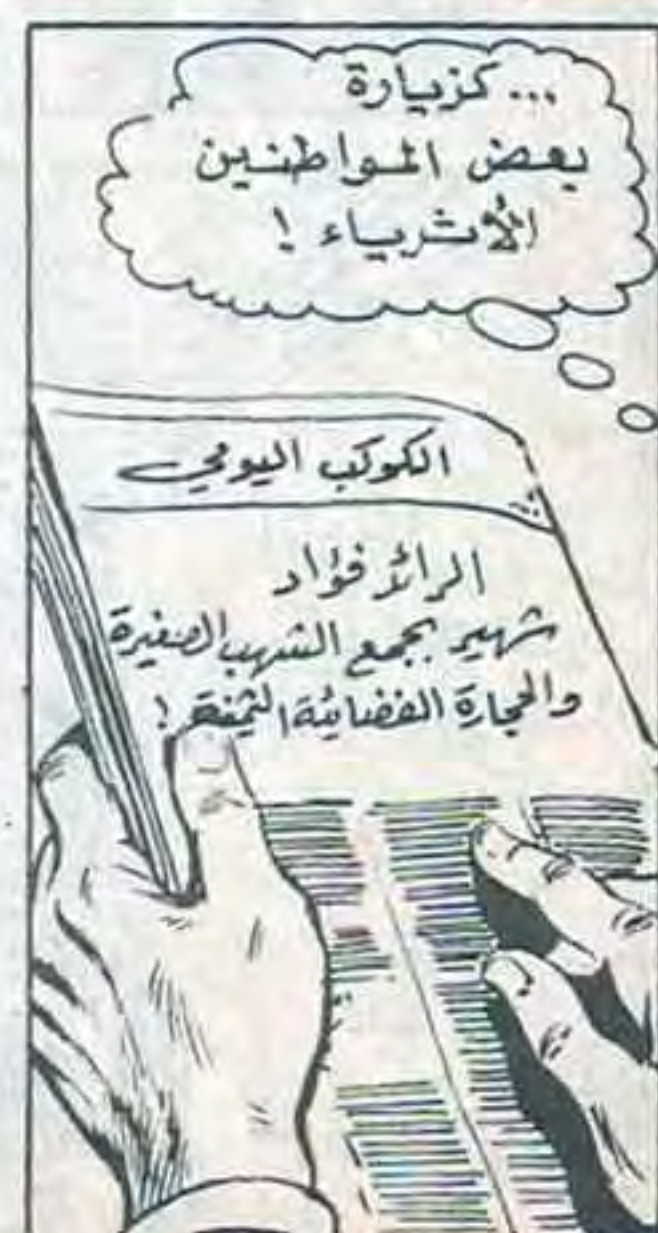 ... كزيارة
بعض المواطنين
الأثرياء !
الكوكب اليومي
الرائد فؤاد
شهير بجمع الشهب الصغيرة
والحجارة الفضائية الثمينة !